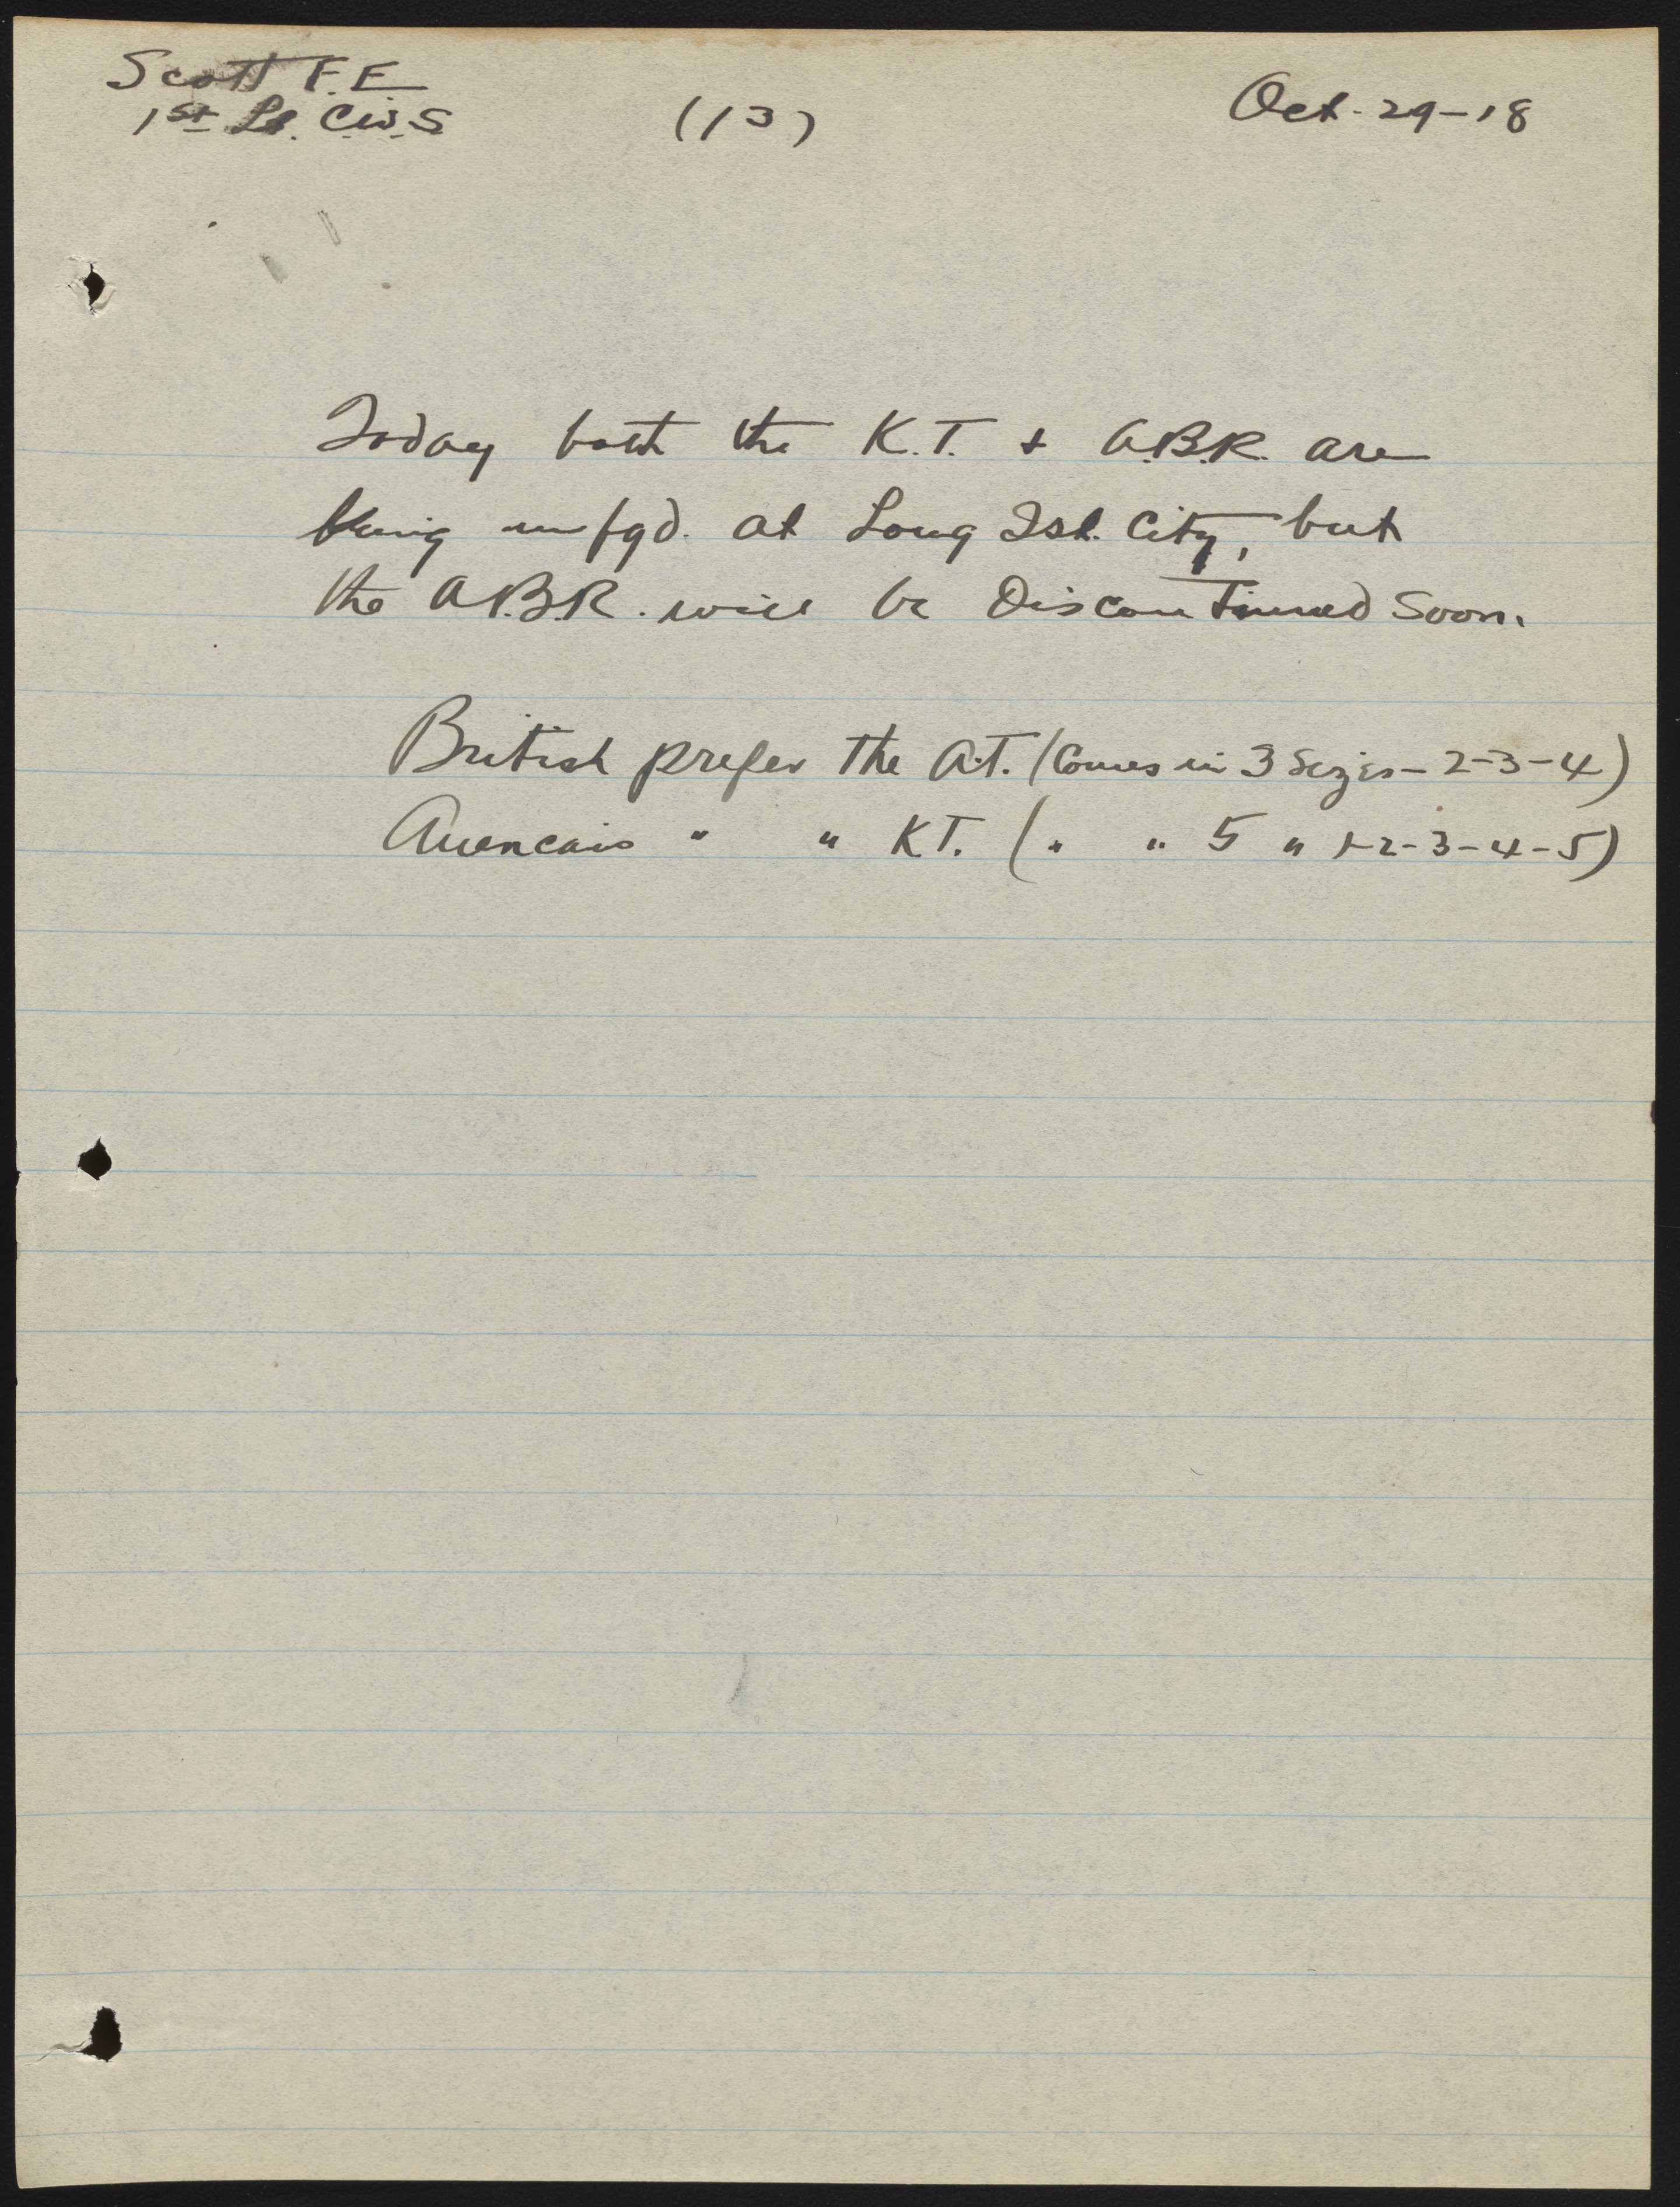 Scott F.E
1st Lt. C.W.S.
(13)
Oct. 29-18
Today both the K.T. + A.B.R. are
being mfgd. at Long Isl. City, but
the A.B.R. will be Discontinued Soon.
British prefer the A.T. (Comes in 3 Sizes - 2-3-4)
Americans " " K.T. (" " 5 " 1-2-3-4-5)